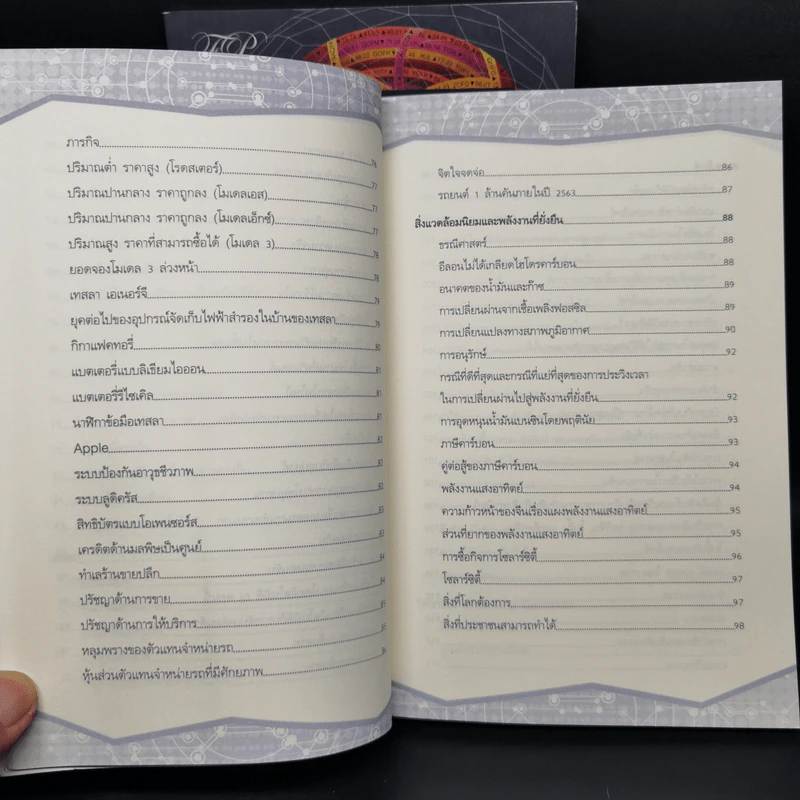 ภารกิจ 76
ปริมาณต่ำ ราคาสูง (โรดสเตอร์) 77
ปริมาณปานกลาง ราคาถูกลง (โมเดลเอส) 77
ปริมาณปานกลาง ราคาถูกลง (โมเดลเอ็กซ์) 77
ปริมาณสูง ราคาที่สามารถซื้อได้ (โมเดล 3) 78
ยอดจองโมเดล 3 ล่วงหน้า 78
เทสลา เอเนอร์จี 79
ยุคต่อไปของอุปกรณ์จัดเก็บไฟฟ้าสำรองในบ้านของเทสลา 79
กิกาแฟคทอรี่ 80
แบตเตอรี่แบบลิเธียมไอออน 81
แบตเตอรี่รีไซเคิล 81
นาฬิกาข้อมือเทสลา 81
Apple 82
ระบบป้องกันอาวุธชีวภาพ 82
ระบบลูดิครัส 83
สิทธิบัตรแบบโอเพนซอร์ส 83
เครดิตด้านมลพิษเป็นศูนย์ 83
ทำเลร้านขายปลีก 84
ปรัชญาด้านการขาย 84
ปรัชญาด้านการให้บริการ 85
หลุมพรางของตัวแทนจำหน่ายรถ 85
หุ้นส่วนตัวแทนจำหน่ายรถที่มีศักยภาพ 86
จิตใจจดจ่อ 86
รถยนต์ 1 ล้านคันภายในปี 2563 87
สิ่งแวดล้อมนิยมและพลังงานที่ยั่งยืน 88
ธรณีศาสตร์ 88
อีลอนไม่ได้เกลียดไฮโดรคาร์บอน 88
อนาคตของน้ำมันและก๊าซ 89
การเปลี่ยนผ่านจากเชื้อเพลิงฟอสซิล 89
การเปลี่ยนแปลงทางสภาพภูมิอากาศ 90
การอนุรักษ์ 92
กรณีที่ดีที่สุดและกรณีที่แย่ที่สุดของการประวิงเวลา
ในการเปลี่ยนผ่านไปสู่พลังงานที่ยั่งยืน 92
การอุดหนุนน้ำมันเบนซินโดยพฤตินัย 93
ภาษีคาร์บอน 93
คู่ต่อสู้ของภาษีคาร์บอน 94
พลังงานแสงอาทิตย์ 94
ความก้าวหน้าของจีนเรื่องแผงพลังงานแสงอาทิตย์ 95
ส่วนที่ยากของพลังงานแสงอาทิตย์ 95
การซื้อกิจการโซลาร์ซิตี้ 96
โซลาร์ซิตี้ 97
สิ่งที่โลกต้องการ 97
สิ่งที่ประชาชนสามารถทำได้ 98